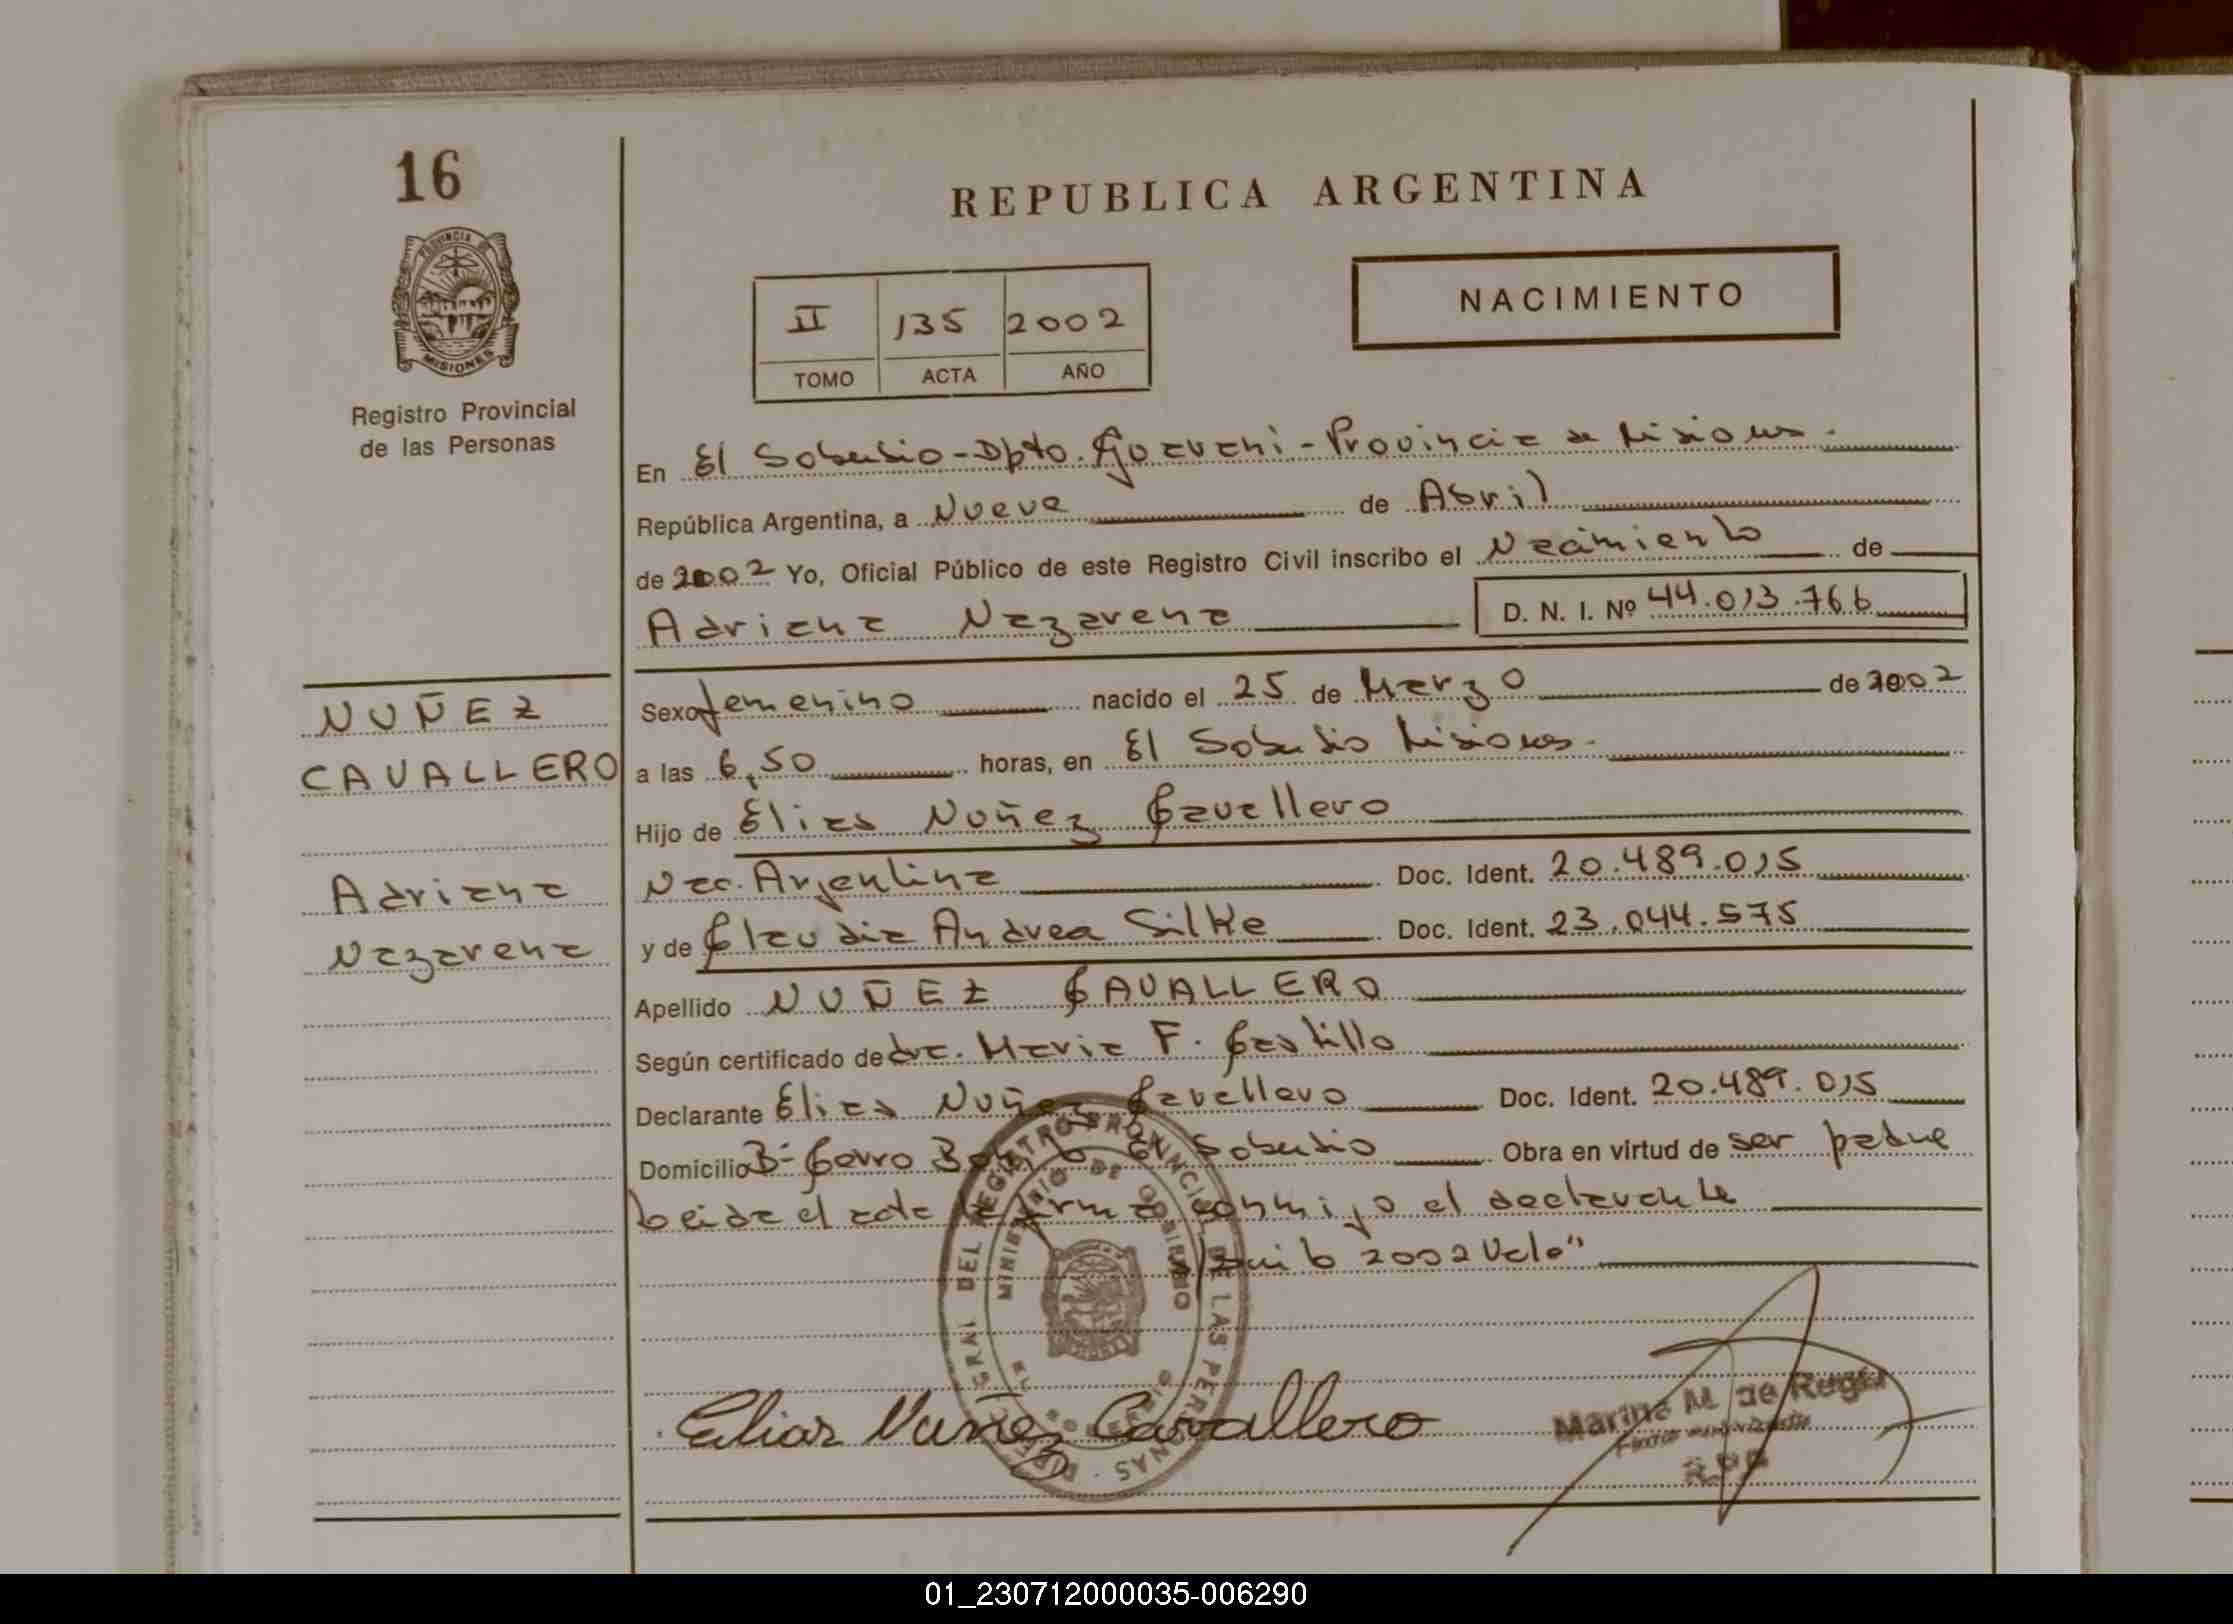 16
REPUBLICA ARGENTINA
PROVINCIA DE
MISIONES
Registro Provincial
de las Personas
NACIMIENTO
II 135 2002
TOMO ACTA AÑO
En El Soberbio - Dpto. Guarani - Provincia de Misiones.
República Argentina, a Nueve de Abril
de 2002 Yo, Oficial Público de este Registro Civil inscribo el Nacimiento de
Adriana Nazarena D. N. I. Nº 44.013.766
NUÑEZ
CAVALLERO
Adriana
Nazarena
Sexo femenino nacido el 25 de Marzo de 2002
a las 6,50 horas, en El Soberbio Misiones.
Hijo de Elias Nuñez Cavallero
Nac. Argentina Doc. Ident. 20.489.015
y de Claudia Andrea Silke Doc. Ident. 23.044.575
Apellido NUÑEZ CAVALLERO
Según certificado de dra. Maria F. Castillo
Declarante Elias Nuñez Cavallero Doc. Ident. 20.489.015
Domicilio Bº Cerro El Soberbio Obra en virtud de ser padre
Leida el acta la firma conmigo el declarante
2002 Vale"
Elias Nuñez Cavallero
DEL REGISTRO PROVINCIAL DE LAS PERSONAS
MINISTERIO DE GOBIERNO
EL SOBERBIO
Marina M. de
01_230712000035-006290